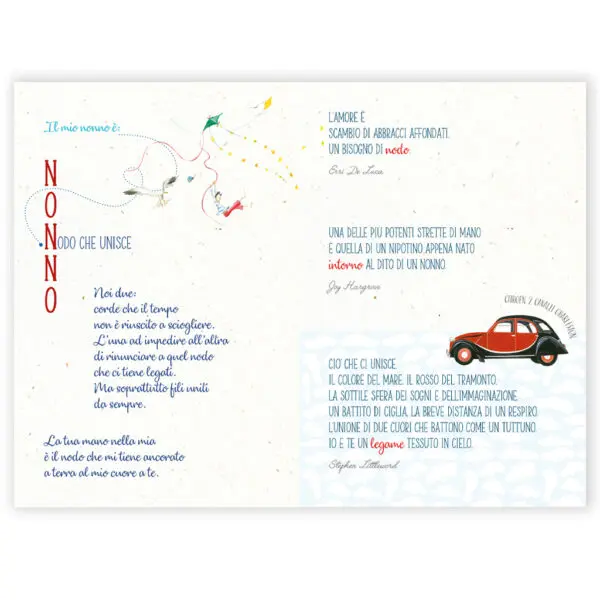 Il mio nonno è:
NONNO
NODO CHE UNISCE
Noi due:
corde che il tempo
non è riuscito a sciogliere.
L'una ad impedire all'altra
di rinunciare a quel nodo
che ci tiene legati.
Ma soprattutto fili uniti
da sempre.
La tua mano nella mia
è il nodo che mi tiene ancorato
a terra al mio cuore a te.
L'AMORE È
SCAMBIO DI ABBRACCI AFFONDATI.
UN BISOGNO DI nodo.
Erri De Luca
UNA DELLE PIÙ POTENTI STRETTE DI MANO
È QUELLA DI UN NIPOTINO APPENA NATO
intorno AL DITO DI UN NONNO.
Joy Hargrove
CITROEN 2 CAVALLI CHARLESTON
CIO' CHE CI UNISCE
IL COLORE DEL MARE. IL ROSSO DEL TRAMONTO.
LA SOTTILE SFERA DEI SOGNI E DELL'IMMAGINAZIONE.
UN BATTITO DI CIGLIA, LA BREVE DISTANZA DI UN RESPIRO.
L'UNIONE DI DUE CUORI CHE BATTONO COME UN TUTTUNO.
IO E TE UN legame TESSUTO IN CIELO.
Stephen Littleword